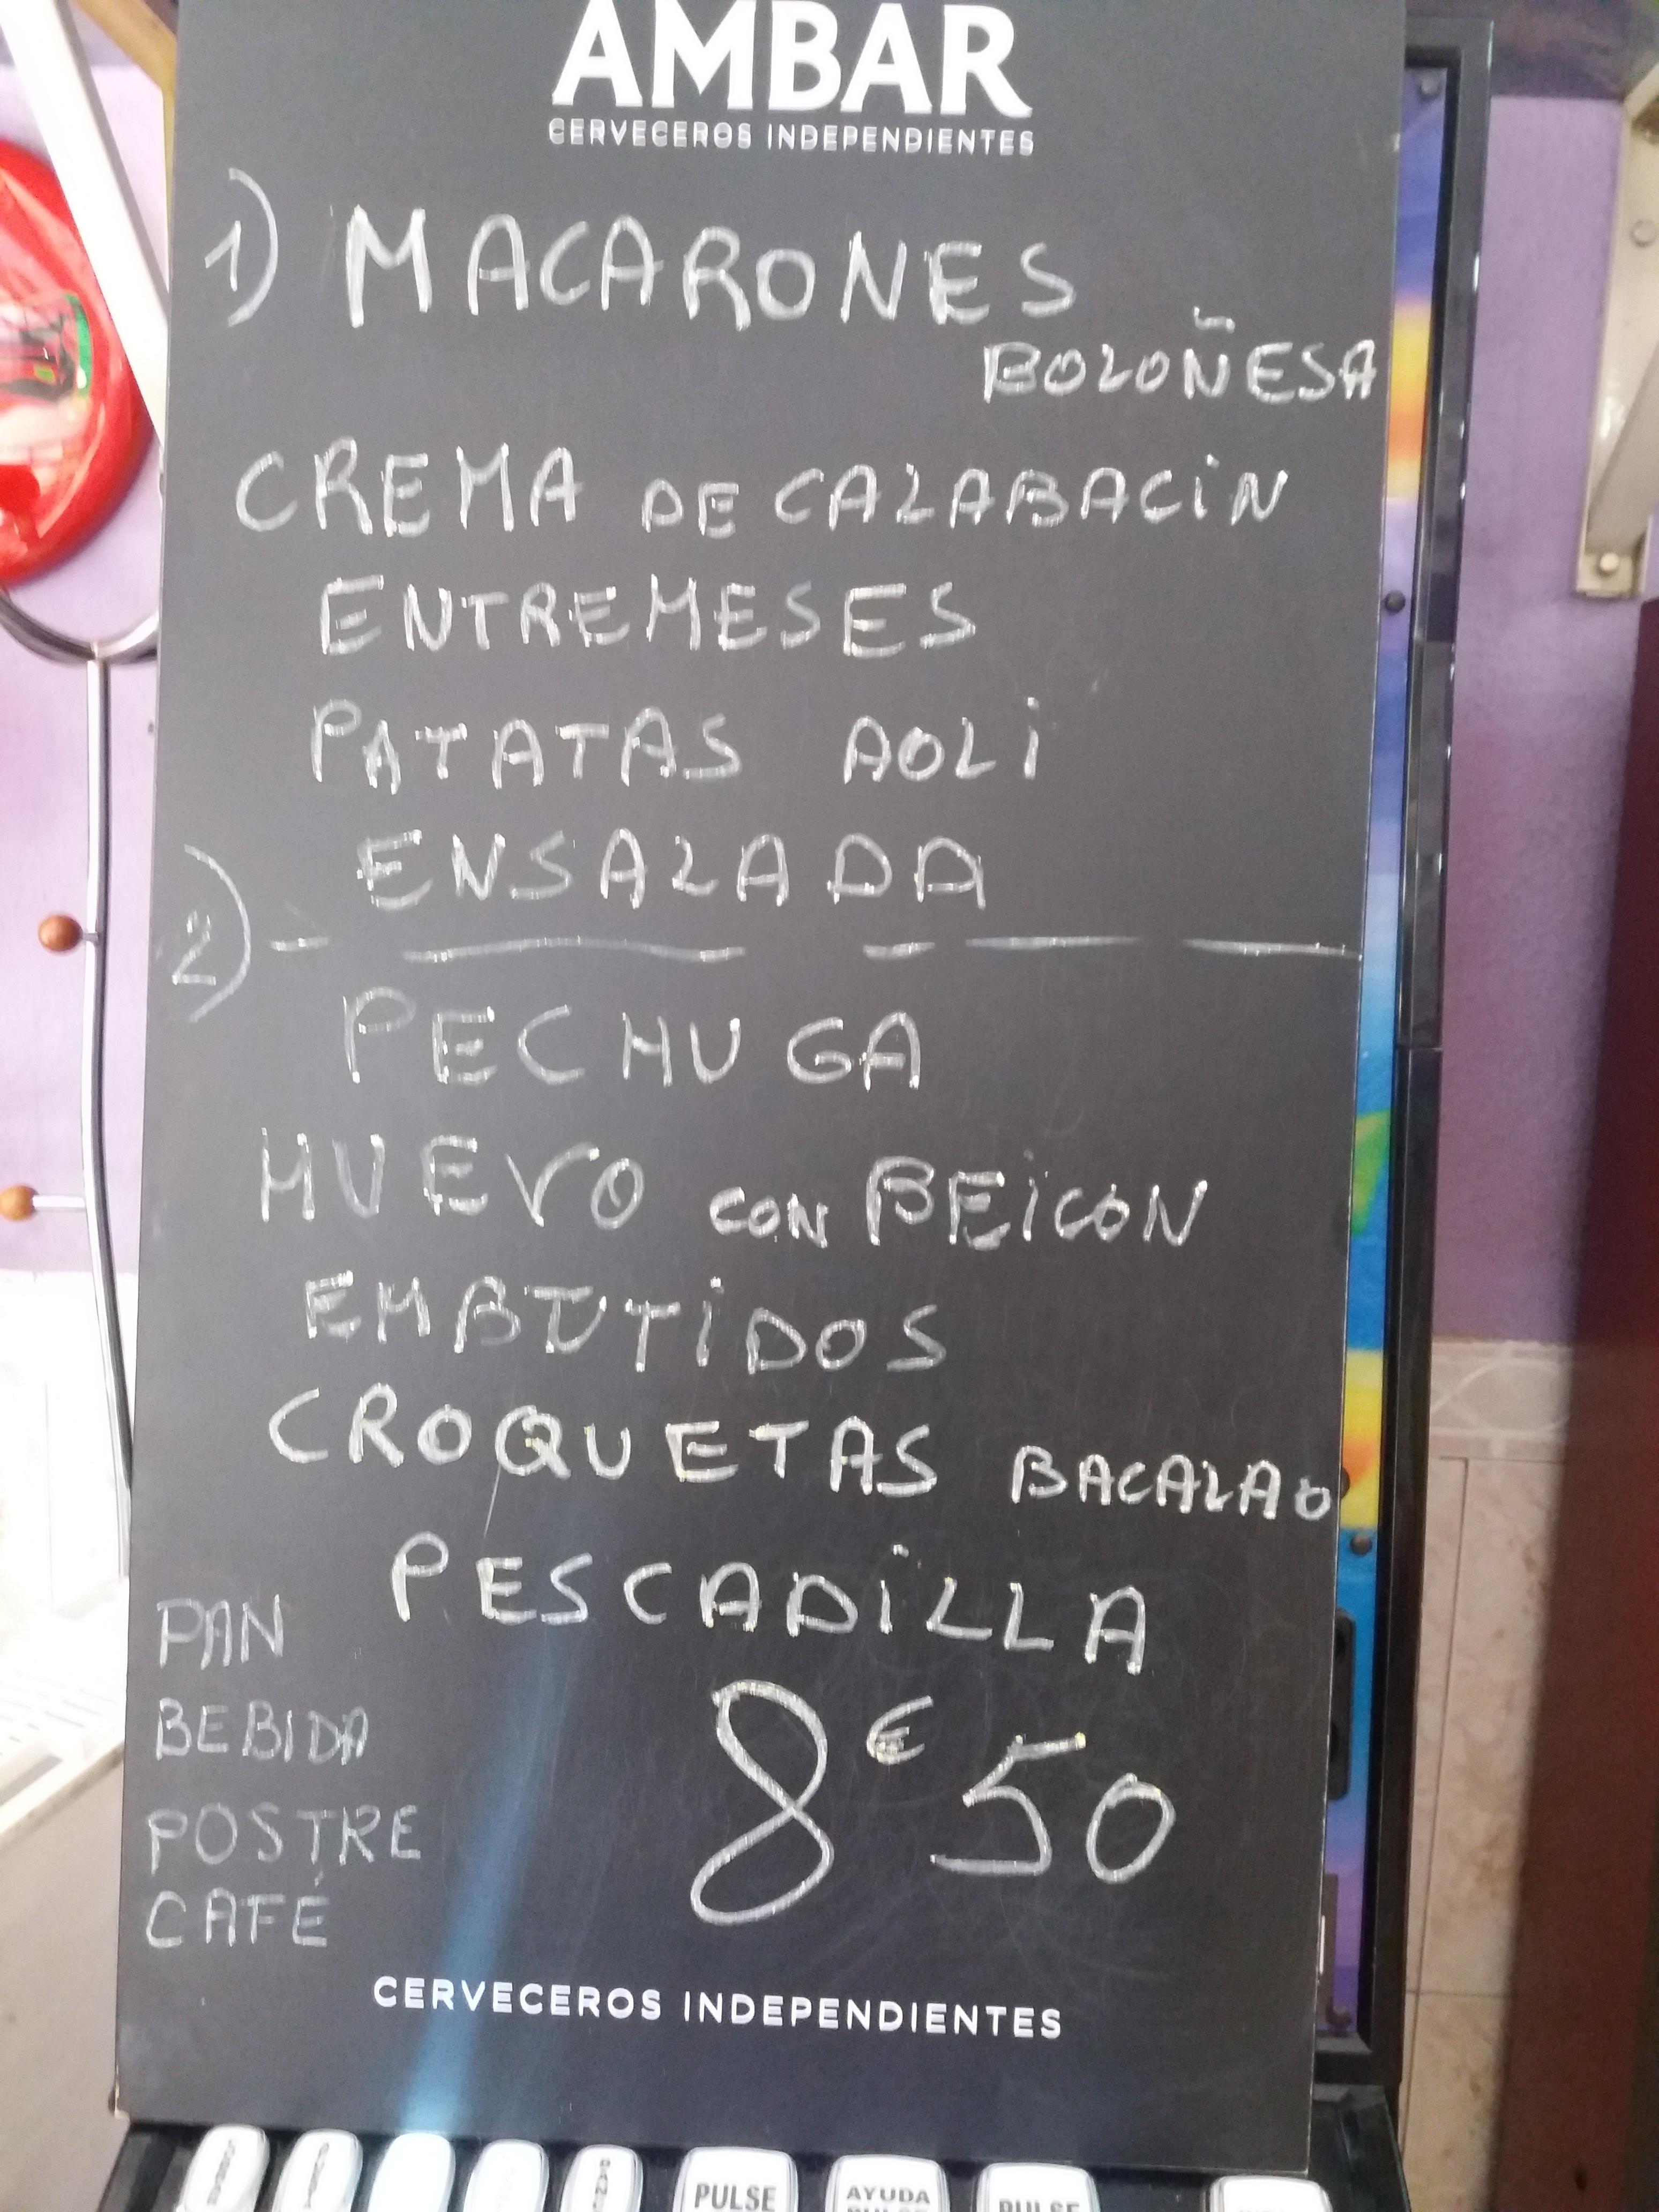 AMBAR
CERVECEROS INDEPENDIENTES
1) MACARONES
BOLOÑESA
CREMA DE CALABACIN
ENTREMESES
PATATAS AOLI
ENSALADA
2)
PECHUGA
HUEVO CON BEICON
EMBUTIDOS
CROQUETAS BACALAO
PESCADILLA
PAN
BEBIDA
POSTRE
CAFÉ
8€50
CERVECEROS INDEPENDIENTES
PULSE
AYUDA
PULSE